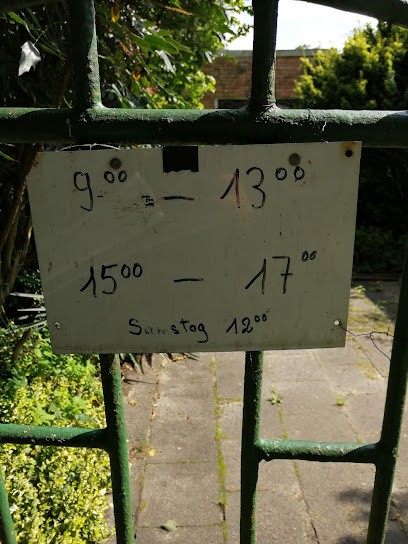 9.00 - 13 00
15 00 - 17 00
Samstag 12 00